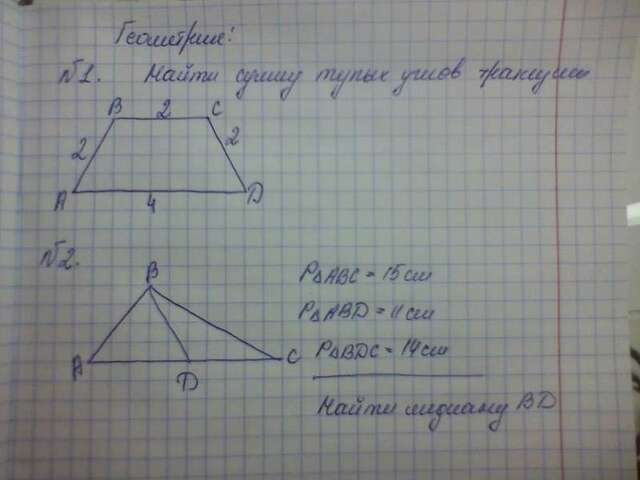 Геометрия:
№1. Найти сумму тупых углов трапеции
B 2 C
2 2
A 4 D
№2.
B
A D C
P△ABC = 15 см
P△ABD = 11 см
P△BDC = 14 см
Найти медиану BD